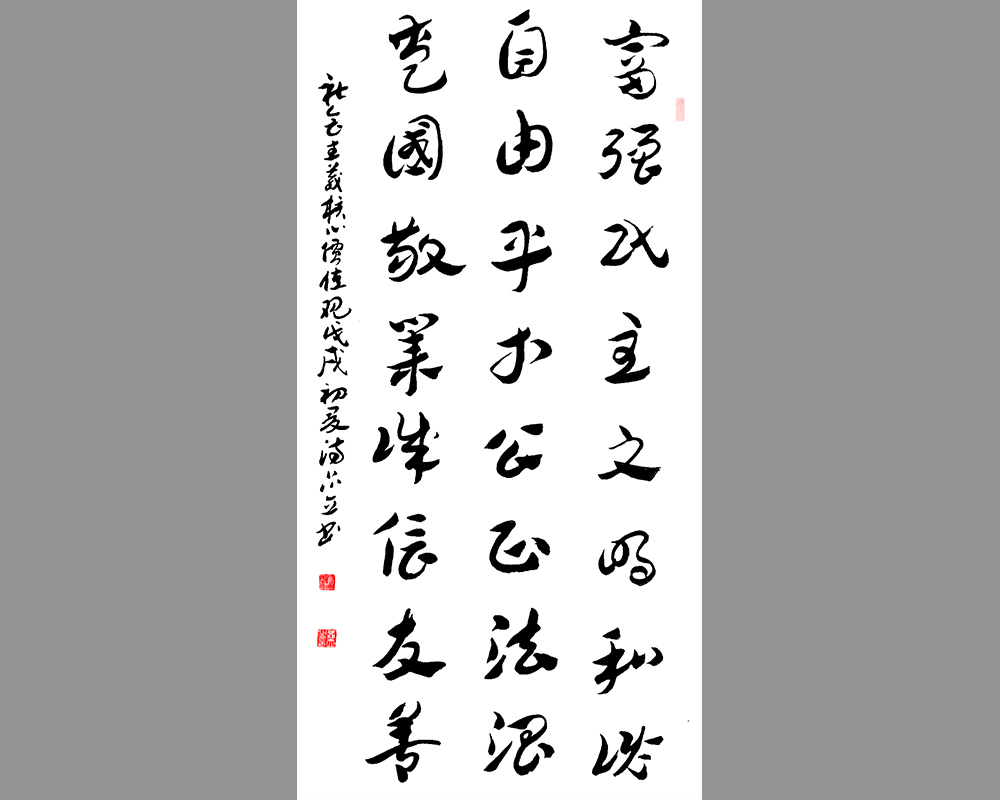 富强民主文明和谐
自由平等公正法治
爱國敬業诚信友善
社会主義核心價值观戊戌初夏书